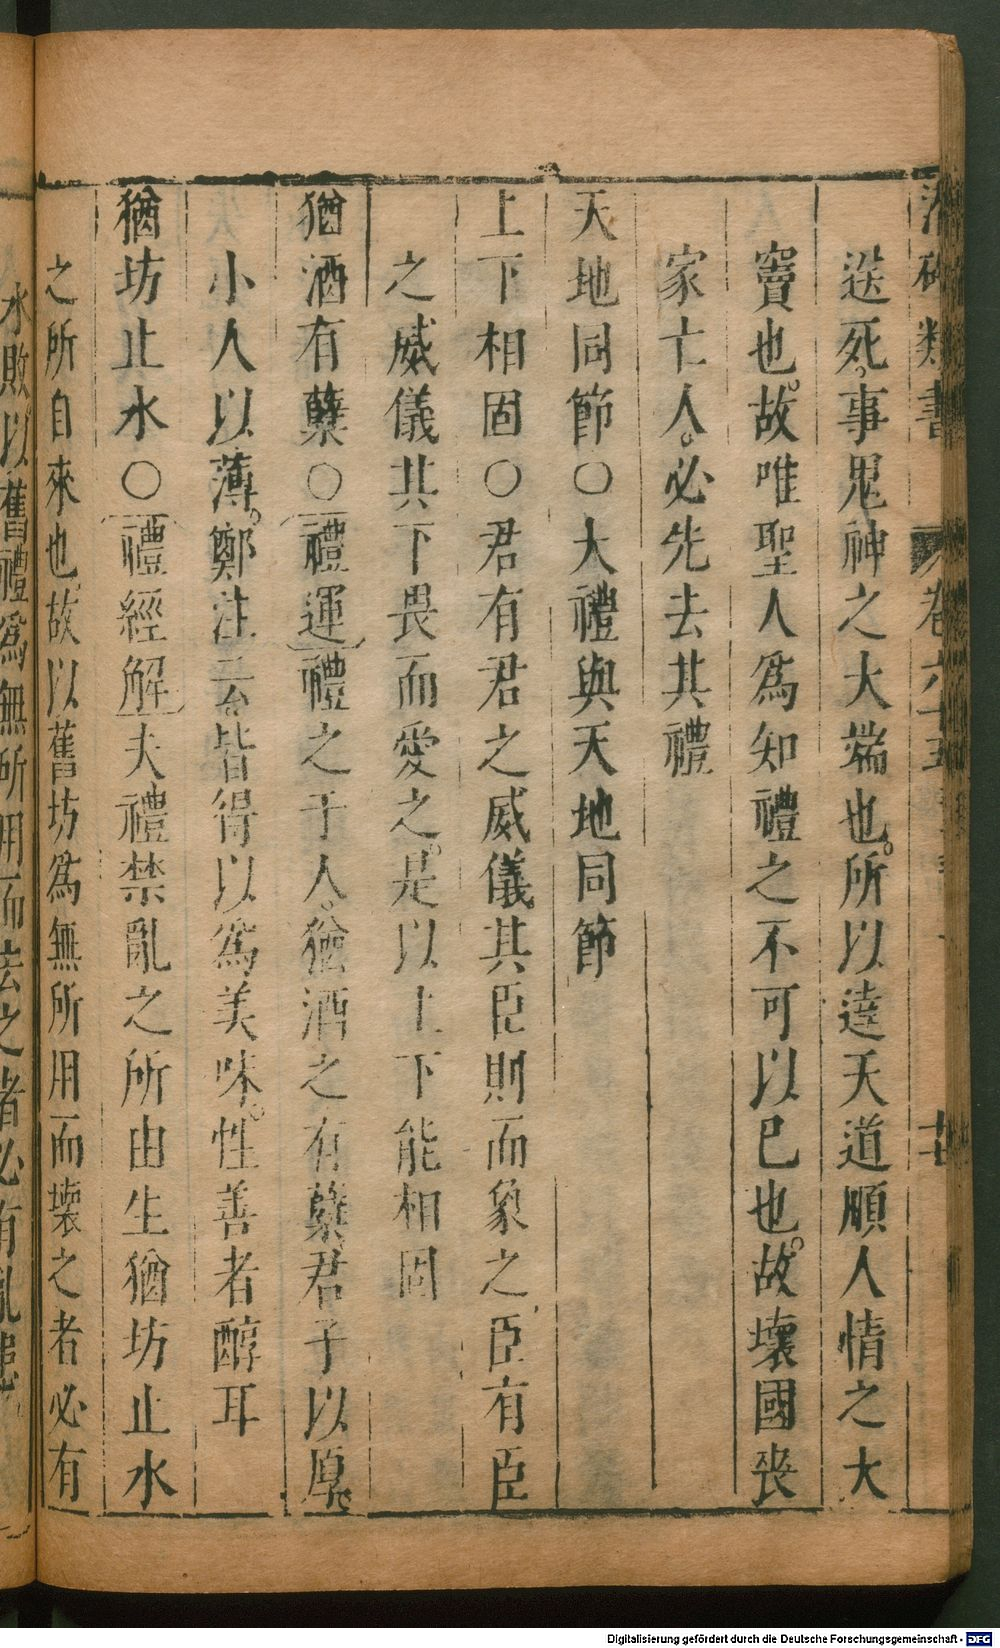 潛確類書 卷六十五
送死事鬼神之大端也。所以達天道順人情之大
竇也。故唯聖人為知禮之不可以已也。故壞國喪
家亡人。必先去其禮
天地同節○大禮與天地同節
上下相固○君有君之威儀其臣則而象之臣有臣
之威儀其下畏而愛之。是以上下能相固
猶酒有糵○禮運禮之于人。猶酒之有糵君子以厚。
小人以薄。鄭注云皆得以為美味。性善者醇耳
猶坊止水○禮經解夫禮禁亂之所由生猶坊止水
之所自來也故以舊坊為無所用而壞之者必有
水敗以舊禮為無所用而去之者必有亂患
Digitalisierung gefördert durch die Deutsche Forschungsgemeinschaft - DFG